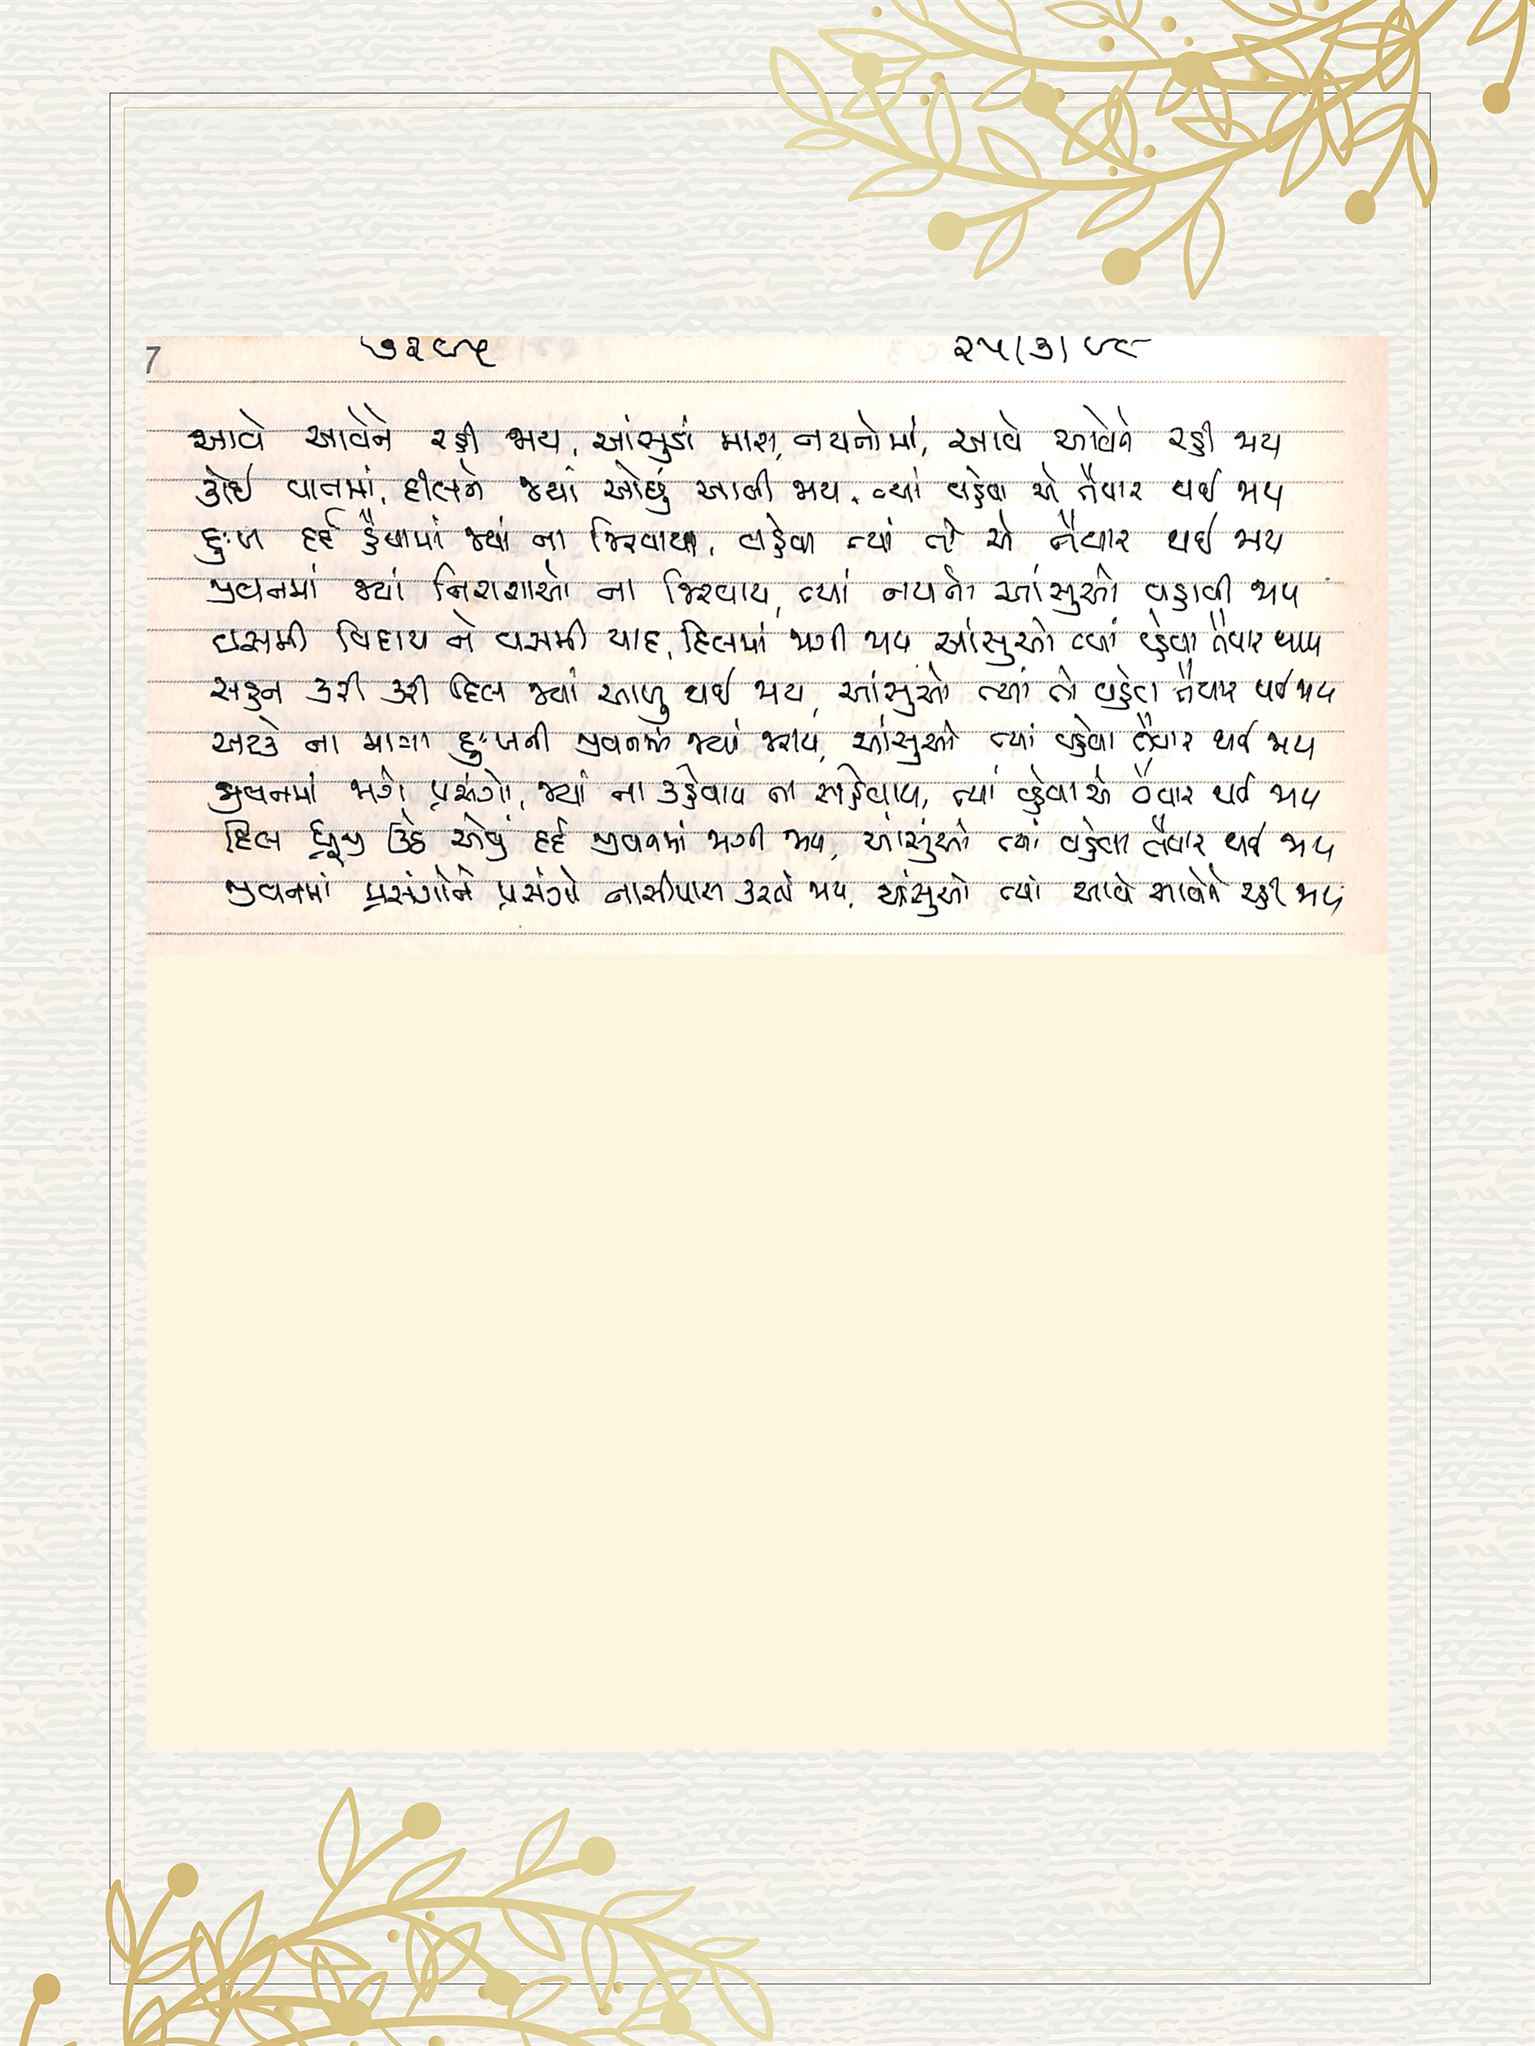 7 ૭૨૯૫ ૨૫/૩/૯૮
આવે આવેને રહી જાય, આંસુડાં મારા, નયનોમાં, આવે આવેને રહી જાય
કોઈ વાતમાં, દીલને જ્યાં ઓછું આવી જાય, ત્યાં વહેવા એ તૈયાર થઈ જાય
દુઃખ દર્દ હૈયામાં જ્યાં ના જિરવાય, વહેવા ત્યાં તો એ તૈયાર થઈ જાય
જીવનમાં જ્યાં નિરાશાઓ ના જિરવાય, ત્યાં નયનો આંસુઓ વહાવી જાય
વસમી વિદાય ને વસમી યાદ, દિલમાં જાગી જાય આંસુઓ ત્યાં વ્હેવા તૈયાર થાય
સહન કરી કરી દિલ જ્યાં આળુ થઈ જાય, આંસુઓ ત્યાં તો વહેવા તૈયાર થઈ જાય
અટકે ના માત્રા દુઃખની જીવનમાં જ્યાં જરાય, આંસુઓ ત્યાં વહેવા તૈયાર થઈ જાય
જીવનમાં જાગે પ્રસંગો, જ્યાં ના કહેવાય ના સહેવાય, ત્યાં વ્હેવા એ તૈયાર થઈ જાય
દિલ ધ્રૂજી ઉઠે એવું દર્દ જીવનમાં જાગી જાય, આંસુઓ ત્યાં વહેવા તૈયાર થઈ જાય
જીવનમાં પ્રસંગોને પ્રસંગો નાસીપાસ કરતો જાય, આંસુઓ ત્યાં આવે આવેને રહી જાય